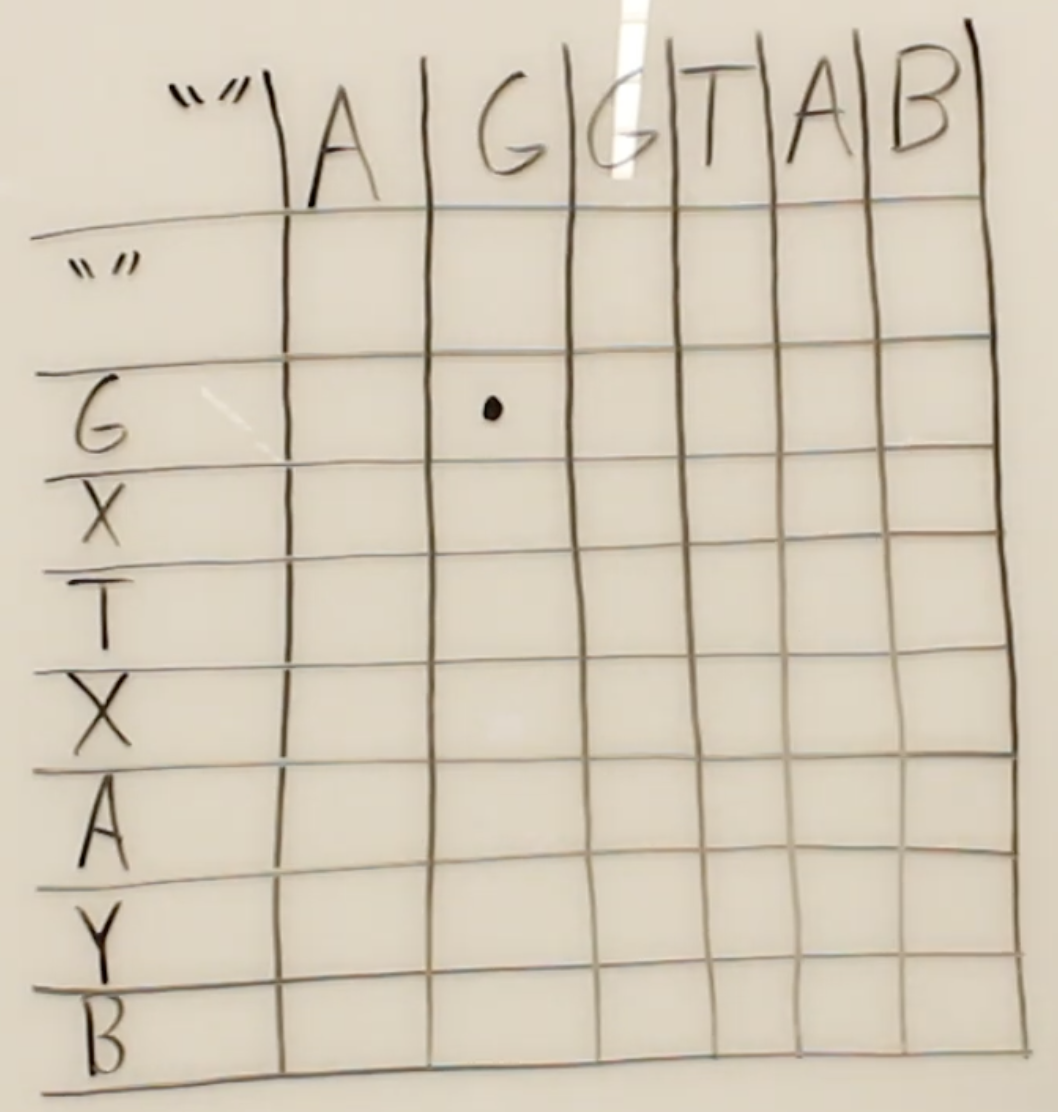 "" A G G T A B
""
G
X
T
X
A
Y
B